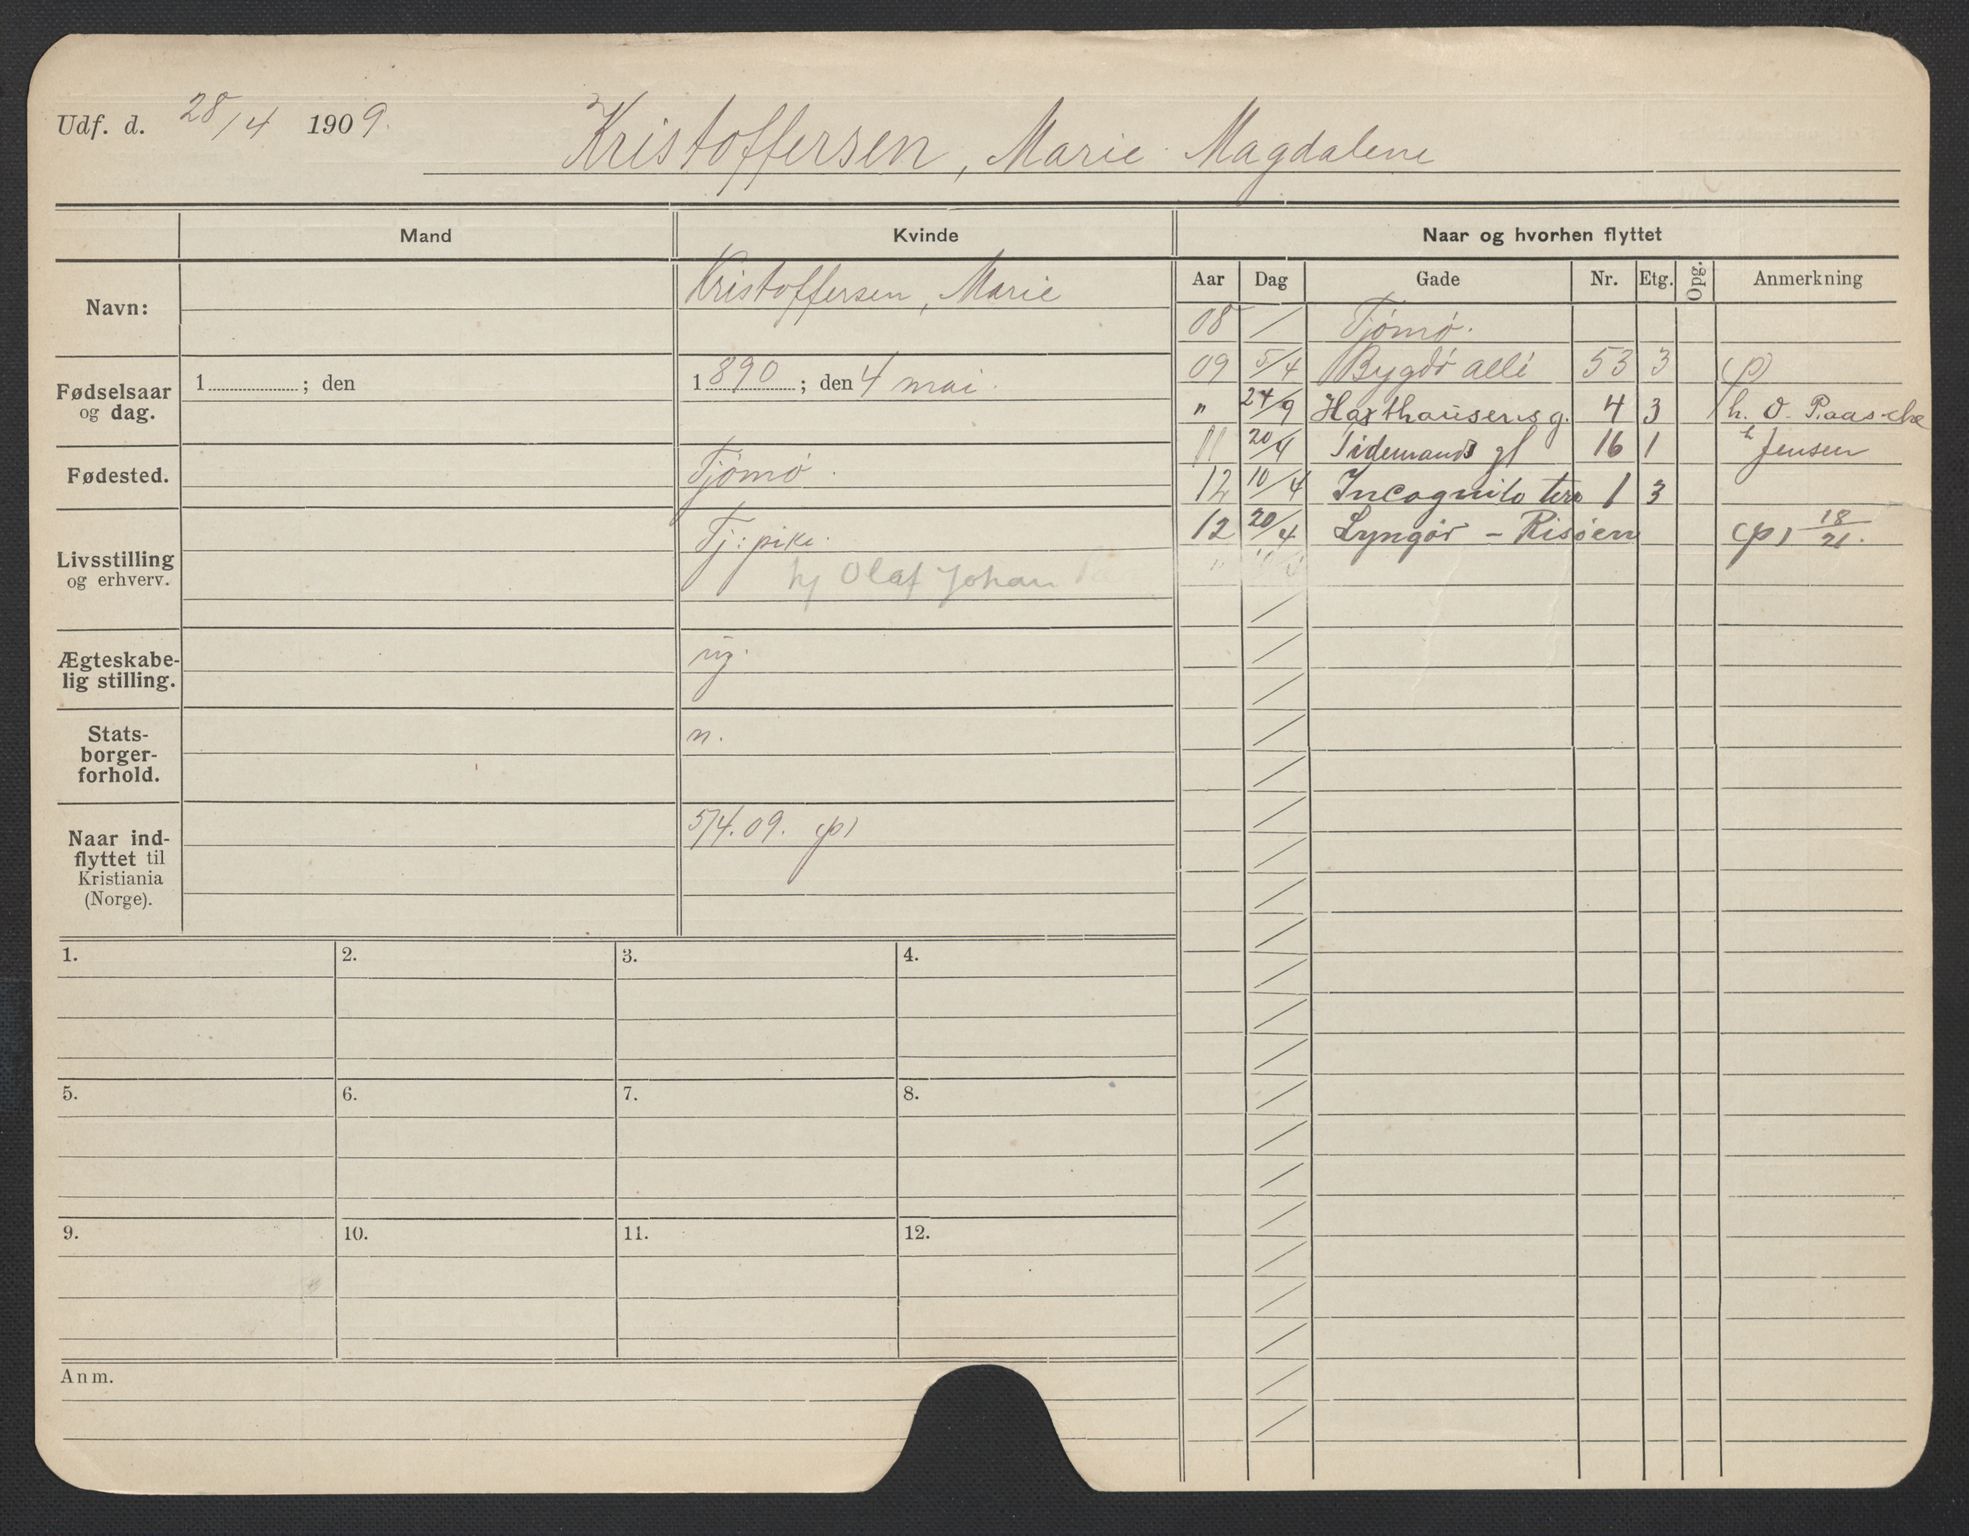 Udf. d. 28/4 1909.
Kristoffersen, Marie Magdalene
Mand
Kvinde
Naar og hvorhen flyttet
Navn:
Kristoffersen, Marie
Fødselsaar og dag.
1 ; den
1890 ; den 4 mai.
Fødested.
Tjømø.
Livsstilling og erhverv.
Tj: pike.
hj Olaf Johan
Ægteskabe-
lig stilling.
ug.
Stats-
borger-
forhold.
n.
Naar ind-
flyttet til
Kristiania
(Norge).
5/4.09. (p)
Aar Dag Gade Nr. Etg. Opg. Anmerkning
08 / Tjømø.
09 5/4 Bygdø allé 53 3 (p)
" 24/9 Haxthausens g. 4 3 h. O. Paasche
11 20/4 Tidemands gt 16 1 h Jensen
12 10/4 Incognito terr 1 3
12 20/4 Lyngør - Risøen (p) 18/21.
1. 2. 3. 4.
5. 6. 7. 8.
9. 10. 11. 12.
Anm.